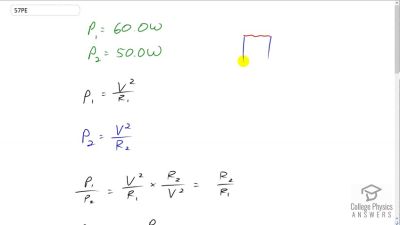 57PE
P₁ = 60.0W
P₂ = 50.0W
P₁ = V²/R₁
P₂ = V²/R₂
P₁/P₂ = V²/R₁ × R₂/V² = R₂/R₁
College Physics
ANSWERS